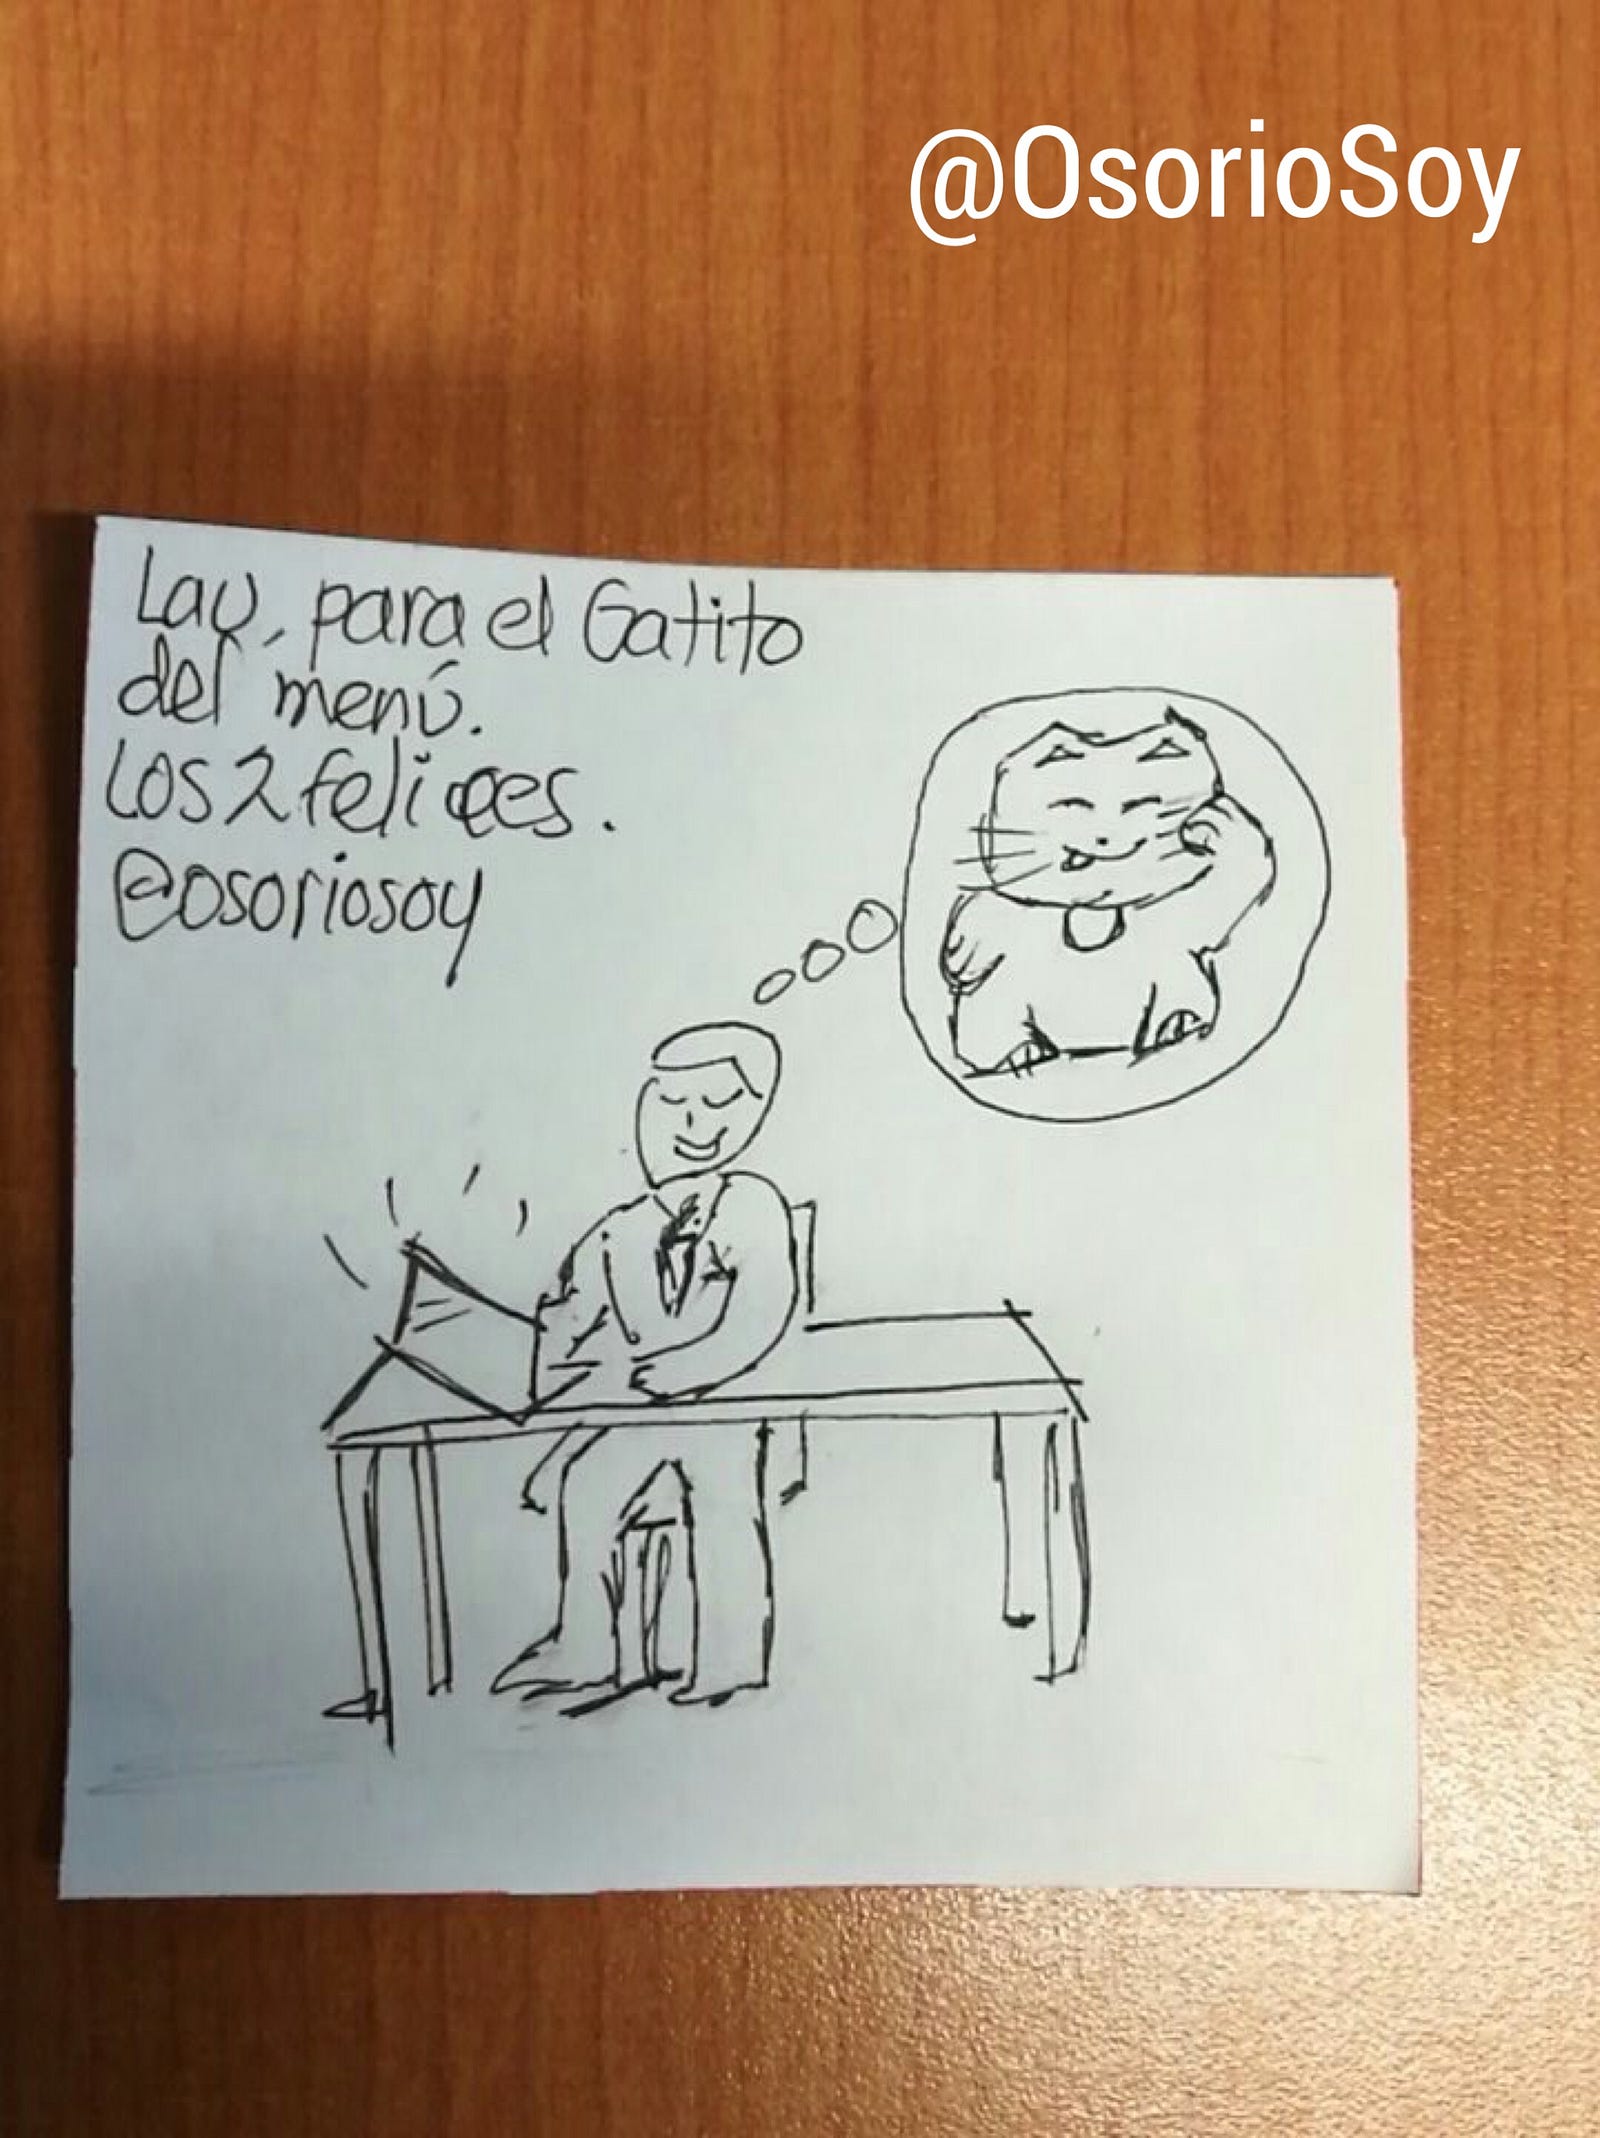 @OsorioSoy
Lau, para el Gatito
del menú.
Los 2 felices.
@osoriosoy